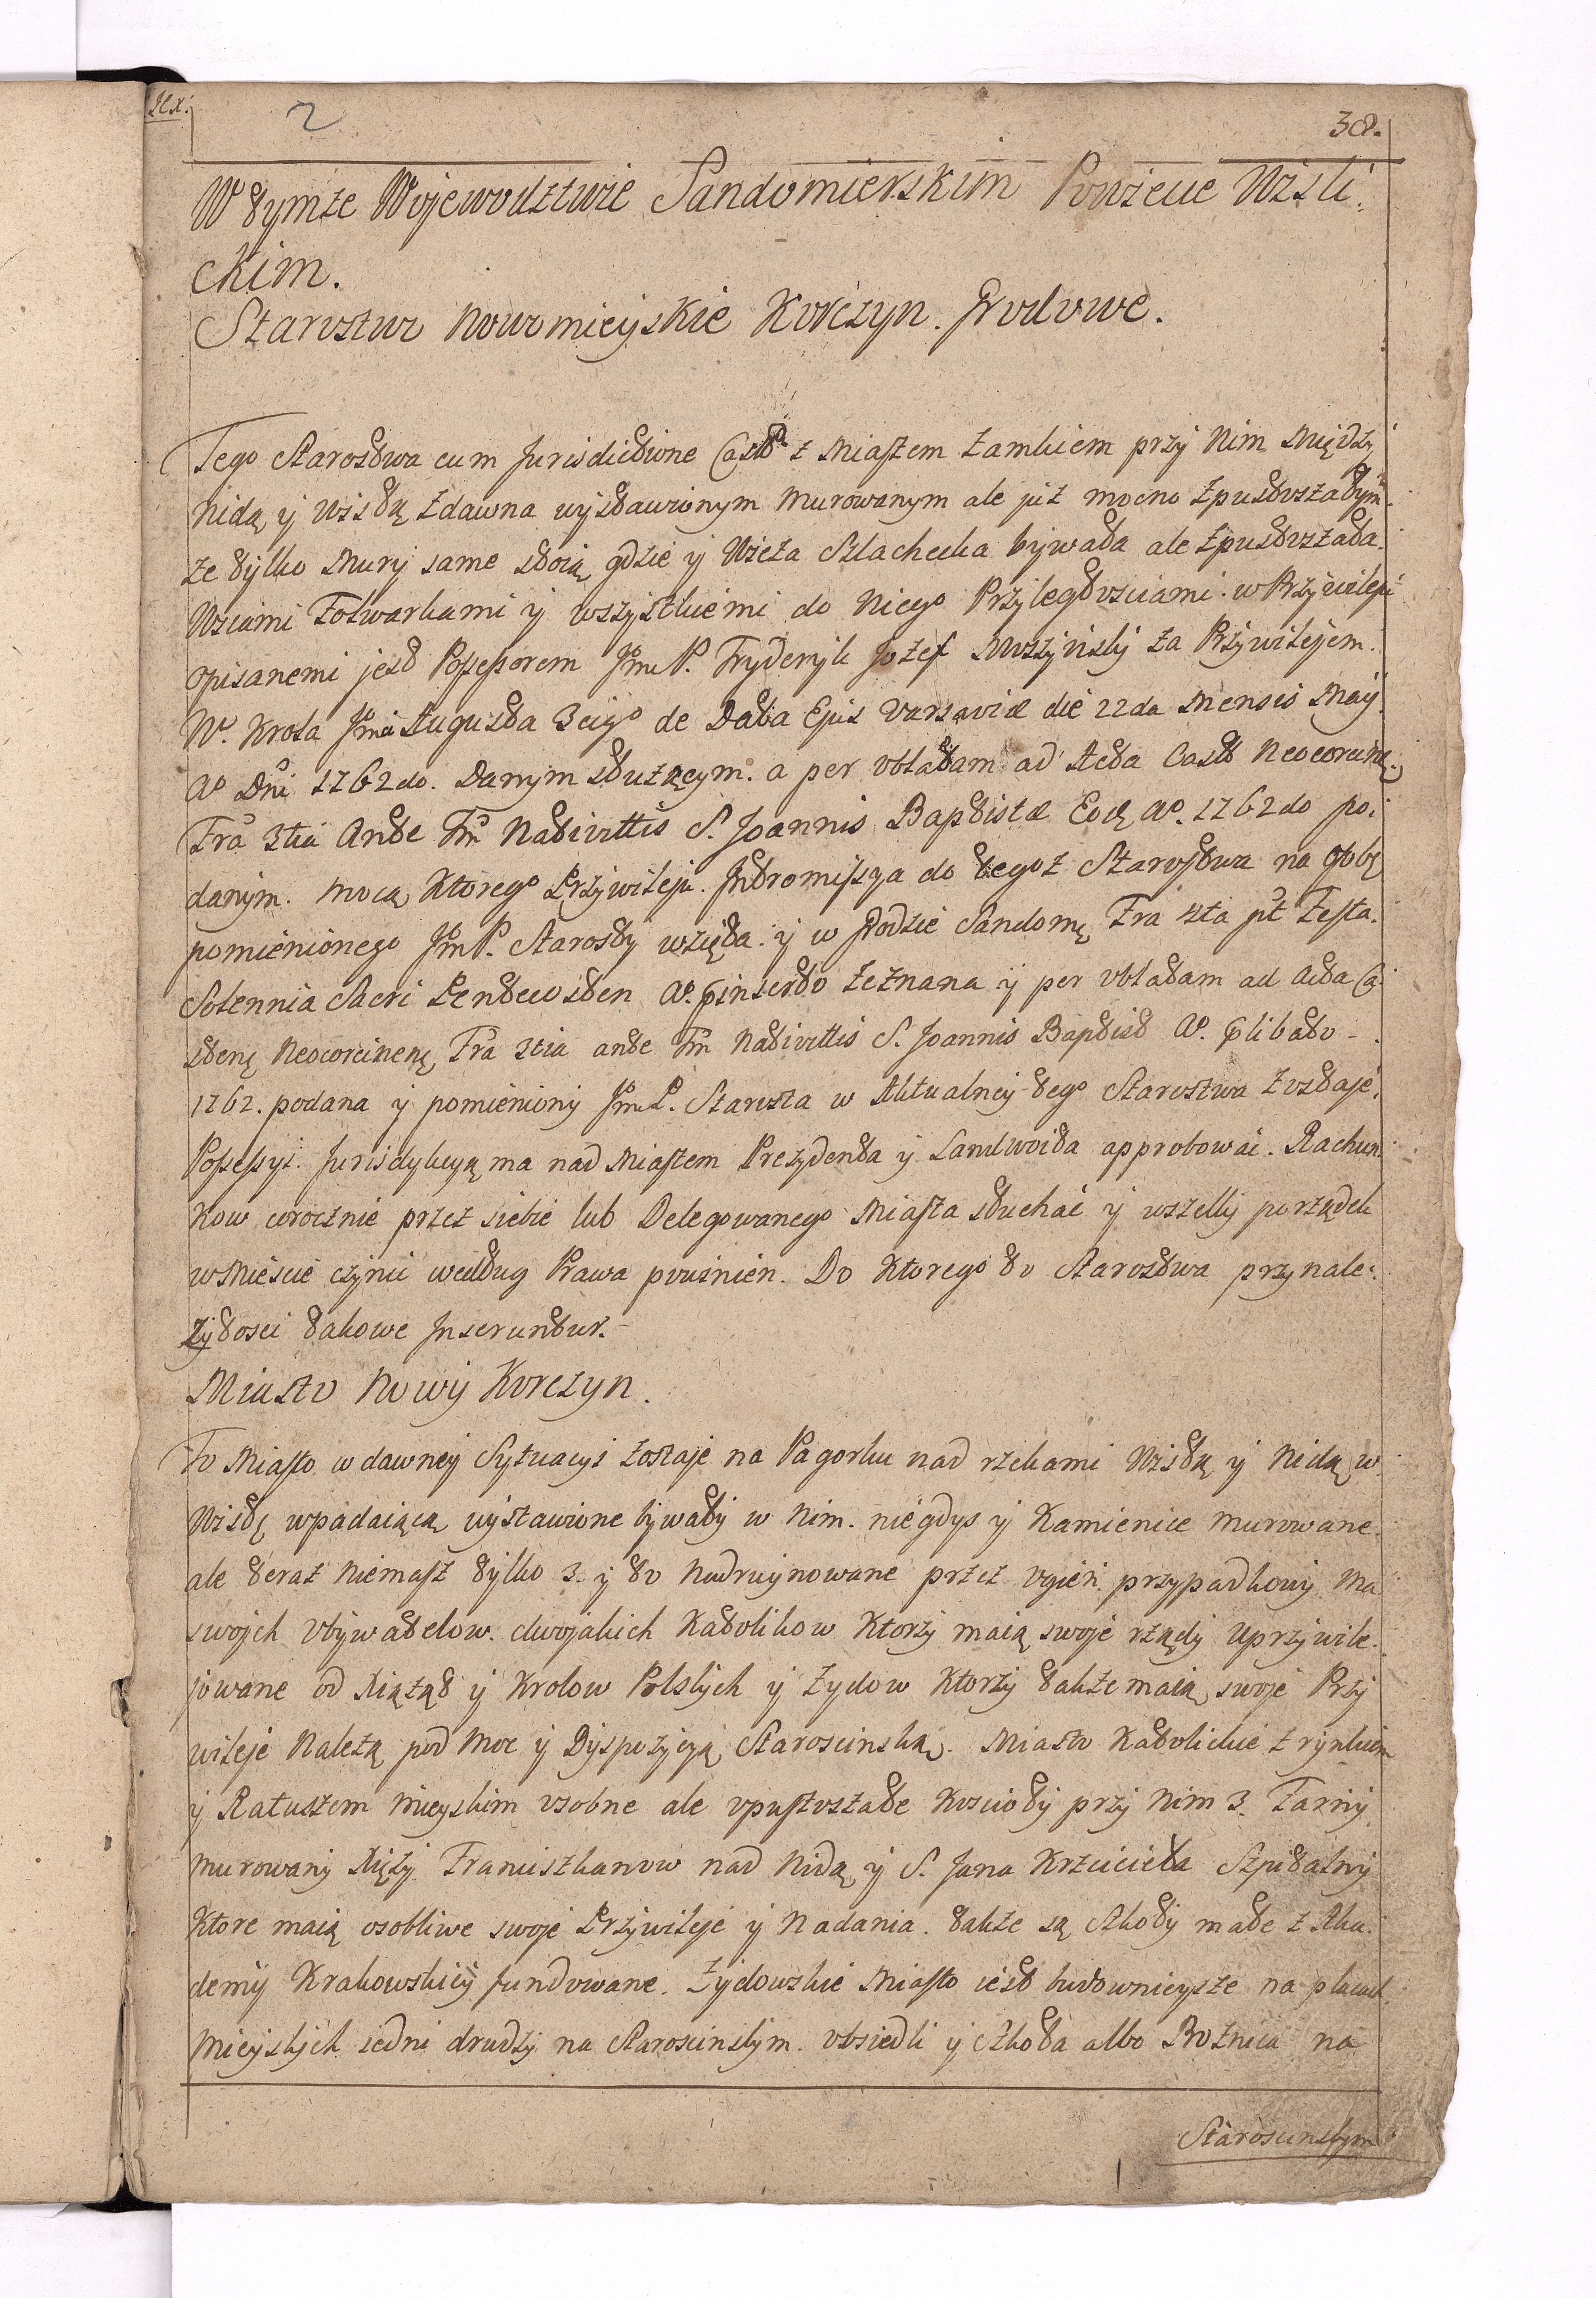 2
38.
W tymze Wojewodztwie Sandomierskim Powiecie Wisli:
ckim.
Starostwo Nowomieyskie Korczyn. Grodowe.
Tego Starostwa cum Jurisdictione Castr z Miastem Zamkiem przy Nim Między
Nidą y Wisłą zdawna wystawionym Murowanym ale już mocno zpustoszałym
ze tylko Mury same stoią gdzie y Wieża Szlachecka bywała ale zpustoszała.
Wsiami Folwarkami y wszystkiemi do Niego Przyległosciami w Przywileju
opisanemi jest Possessorem Jmć P. Fryderyk Jozef Moszyński za Przywilejem.
N. Krola Jmci Augusta 3cigo de Data Ejus Varsaviæ die 22da Mensis Maij
Aº Dni 1762do. Danym służącym. a per oblatam ad Acta Castr Neocorcinę.
Fra 3tia Ante Fm Nativittis S. Joannis Baptistæ Eodę Aº. 1762do po:
danym. mocą Ktorego Przywileju. Intromissya do tegoz Starostwa na osobę
pomienionego Jmć P. Starosty wzięta: y w Grodzie Sandomę Fra 4ta pt Festa.
Solennia Sacri Pentecosten Aº. pinserto zeznana y per oblatam ad Acta Ca:
strenę Neocorcinenę Fra 3tia ante Fm Nativittis S. Joannis Baptist Aº. plibato -
1762. podana y pomieniony Jmć P. Starosta w Aktualney tego Starostwa zostaje
Possessyi. Jurisdykcyą ma nad Miastem Prezydenta y Landwoita approbować. Rachun:
kow corocznie przez siebie lub Delegowanego Miasta słuchać y wszelki porządek
w Mieście czynić według Prawa powinien. Do Ktorego to Starostwa przynale:
żytosci takowe Inseruntur.
Miasto Nowy Korczyn.
To Miasto w dawney Sytuacyi zostaje na Pagorku nad rzekami Wisłą y Nidą w
Wisłę wpadaiącą wystawione bywały w Nim. niegdys y Kamienice murowane.
ale teraz niemasz tylko 3. y to nadruynowane przez ogień przypadkowy ma
swojch obywatelow. dwojakich Katolikow Ktorzy maią swoje rządy uprzywile:
jowane od Xiążąt y Krolow Polskych y Zydow Ktorzy takze maią swoje Przy
wileje Należą pod Moc y Dyspozyczą Starościnską. Miasto Katolickie z rynkiem
y Ratuszem Mieyskim osobne ale opustoszałe Kościoły przy Nim 3. Farny
murowany Xięży Franciszkanow nad Nidą y S. Jana Krzciciela Szpitalny
Ktore maią osobliwe swoje Przywileje y Nadania. takze są szkoły małe z Aka:
demij Krakowskiey fundowane. Zydowskie Miasto iest budownieysze na placach
Mieyskych iedni drudzy na Starościnskym. obsiedli y szkoła albo Bożnica na
Starościnskym